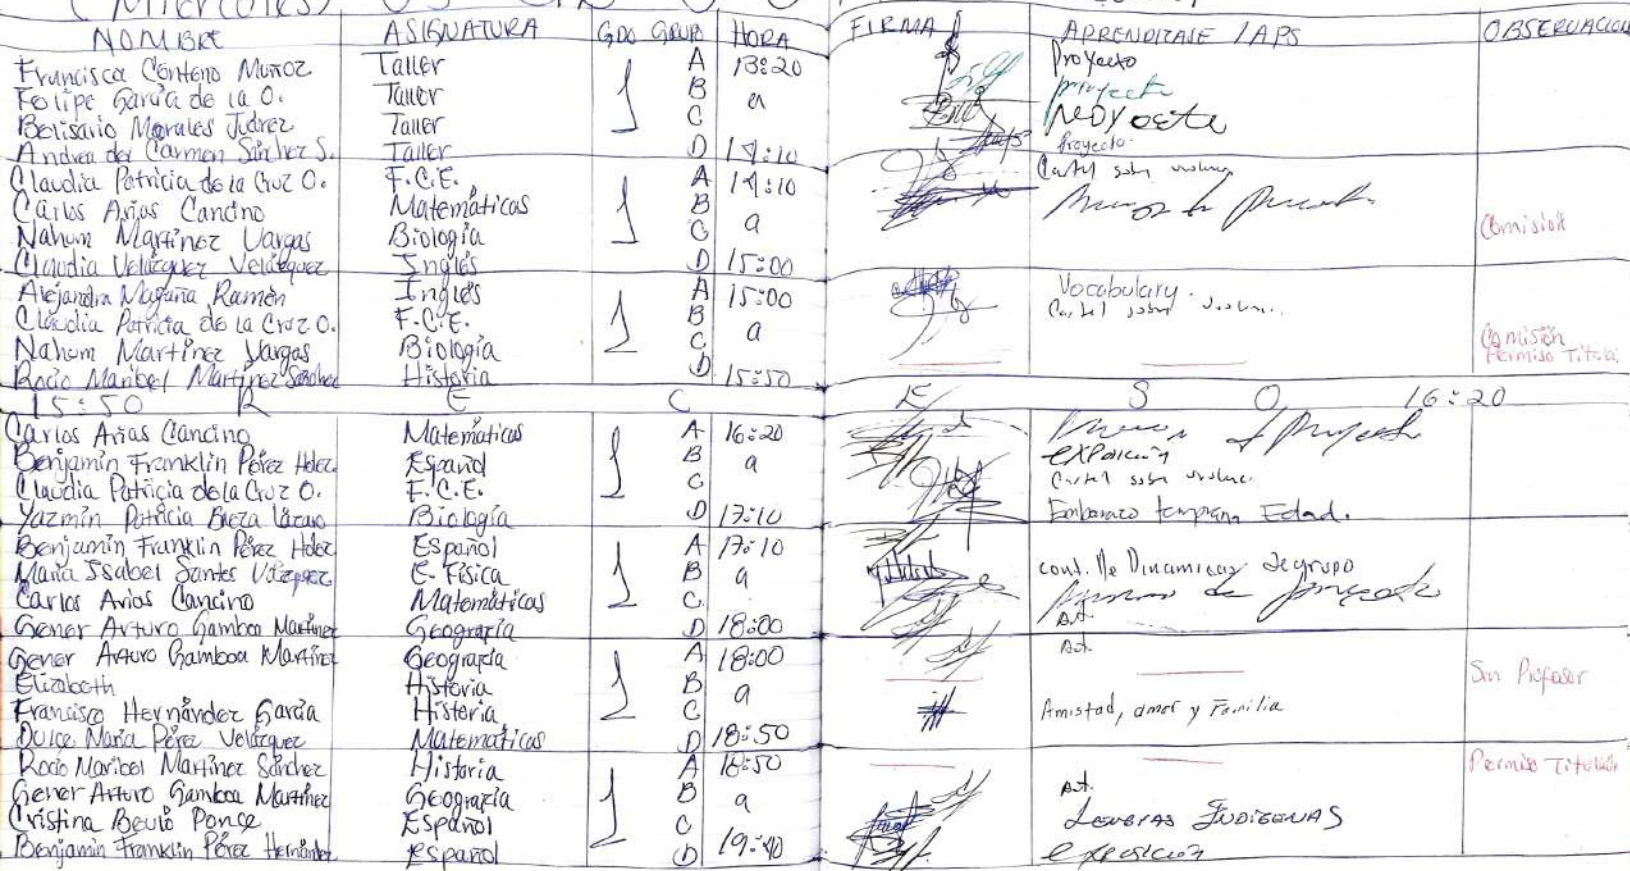 (Miércoles)
NOMBRE ASIGNATURA GDO GRUPO HORA FIRMA APRENDIZAJE /APS OBSERVACION
Francisca Centeno Muñoz Taller 1 A 13:20 Proyecto
Felipe García de la O. Taller B a proyecto
Belisario Morales Juárez Taller C proyecto
Andrea del Carmen Sánchez S. Taller D 14:10 Proyecto
Claudia Patricia de la Cruz O. F.C.E. 1 A 14:10 Cartel sobre
Carlos Arias Cancino Matemáticas B
Nahum Martínez Vargas Biología C a Comisión
Claudia Velázquez Velázquez Inglés D 15:00
Alejandra Magaña Ramón Inglés 1 A 15:00 Vocabulary.
Claudia Patricia de la Cruz O. F.C.E. B a Cartel sobre
Nahum Martínez Vargas Biología C Comisión
Rocío Maribel Martínez Sánchez Historia D 15:50 Permiso Titula
15:50 R E C E S O 16:20
Carlos Arias Cancino Matemáticas 1 A 16:20
Benjamín Franklin Pérez Hdez. Español B a exposición
Claudia Patricia de la Cruz O. F.C.E. C Cartel sobre
Yazmín Patricia Lázaro Biología D 17:10 Embarazo temprana Edad.
Benjamín Franklin Pérez Hdez Español 1 A 17:10
María Isabel Santes Vázquez E. Física B a cont. De Dinamicas de grupo
Carlos Arias Cancino Matemáticas C
Gener Arturo Gamboa Martínez Geografía D 18:00 Act.
Gener Arturo Gamboa Martínez Geografía 1 A 18:00 Act.
Elizabeth Historia B a Sin Profesor
Francisco Hernández García Historia C Amistad, amor y Familia
Dulce María Pérez Velázquez Matemáticas D 18:50
Rocío Maribel Martínez Sánchez Historia 1 A 18:50 Permiso
Gener Arturo Gamboa Martínez Geografía B a Act.
Cristina Ponce Español C LENGUAS INDIGENAS
Benjamín Franklin Pérez Hernández Español D 19:40 exposición